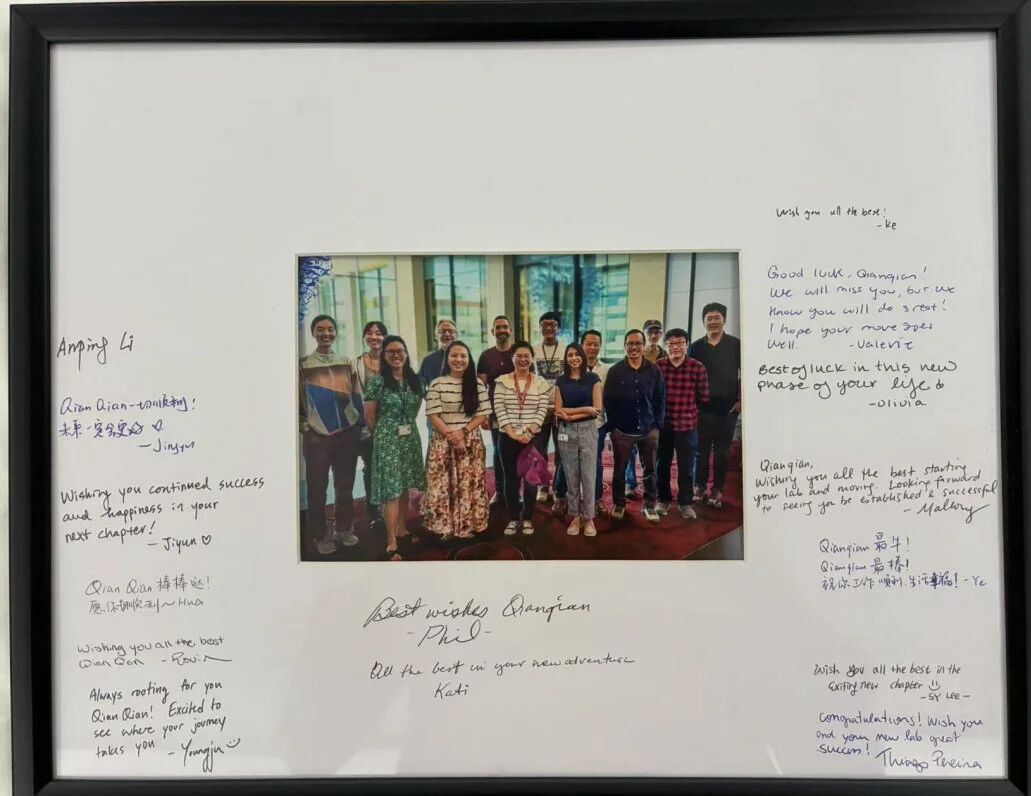 Anping Li
Qian Qian 一切顺利!
未来一定会更好
- Jingyu
Wishing you continued success
and happiness in your
next chapter!
- Jiyun ♡
Qian Qian 棒棒哒!
愿你一切顺利~ Hua
Wishing you all the best
Qian Qian -
Always rooting for you
Qian Qian! Excited to
see where your journey
takes you - Youngjin
Best wishes Qianqian
- Phil -
All the best in your new adventure
Kati
Wish you all the best!
- Ke
Good luck, Qianqian!
We will miss you, but we
know you will do great!
I hope your move goes
well. - Valerie
Best of luck in this new
phase of your life
- Olivia
Qianqian,
Wishing you all the best starting
your lab and moving. Looking forward
to seeing you be established & successful
- Mallory
Qianqian 最牛!
Qianqian 最棒!
祝你工作顺利,生活幸福! - Ye
Wish you all the best in the
exciting new chapter
- SY Lee -
Congratulations! Wish you
and your new lab great
success! Thiago Pereira